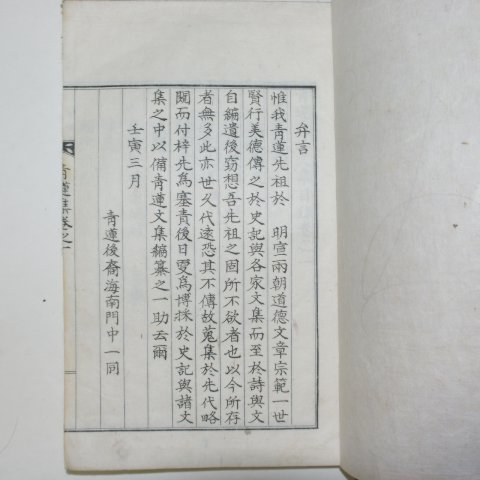 弁言
惟我青蓮先祖於 明宣兩朝道德文章宗範一世
賢行美德傳之於史記與各家文集而至於詩與文
自編遺後窃想吾先祖之固所不欲者也以今所存
者無多此亦世久代遠恐其不傳故蒐集於先代略
閱而付梓先爲塞責後日更爲博採於史記與諸文
集之中以備青蓮文集編纂之一助云爾
壬寅三月
青蓮後裔海南門中一同
青蓮集卷之一